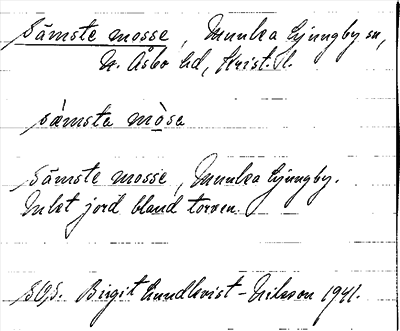 Sämste mosse, Munka Ljungby sn,
N. Åsbo hd, Krist. l.
sämsta mòsa
Sämste mosse, Munka Ljungby.
Mkt jord bland torven.
S.O.S. Birgit Lundkvist-Nilsson 1941.